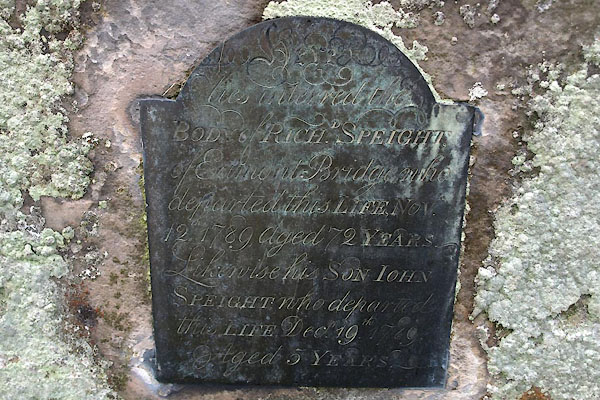 Here
lies interred the
BODY of RICHD. SPEIGHT
of Eamont Bridge who
departed this LIFE Nov.
12 1789 aged 72 YEARS.
Likewise his SON IOHN
SPEIGHT who departed
this LIFE Decr. 19th 1789
Aged 5 YEARS